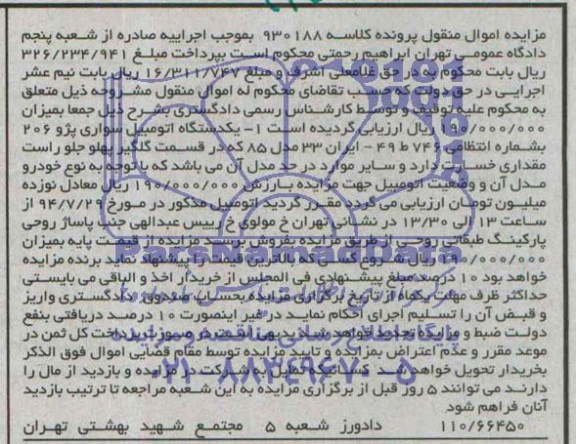 مزایده اموال منقول پرونده کلاسه ۹۳۰۱۸۸ بموجب اجراییه صادره از شعبه پنجم
دادگاه عمومی تهران ابراهیم رحمتی محکوم است بپرداخت مبلغ ۳۲۶/۲۳۴/۹۴۱
ریال بابت محکوم به در حق غلامعلی اشرف و مبلغ ۱۶/۳۱۱/۷۴۷ ریال بابت نیم عشر
اجرایی در حق دولت که حسب تقاضای محکوم له اموال منقول مشروحه ذیل متعلق
به محکوم علیه توقیف و توسط کارشناس رسمی دادگستری بشرح ذیل جمعا بمیزان
۱۹۰/۰۰۰/۰۰۰ ریال ارزیابی گردیده است ۱- یکدستگاه اتومبیل سواری پژو ۲۰۶
بشماره انتظامی ۷۴۶ ط ۴۹ - ایران ۳۳ مدل ۸۵ که در قسمت گلگیر پهلو جلو راست
مقداری خسارت دارد و سایر موارد در حد مدل آن می باشد که با توجه به نوع خودرو
مدل آن و وضعیت اتومبیل جهت مزایده بارزش ۱۹۰/۰۰۰/۰۰۰ ریال معادل نوزده
میلیون تومان ارزیابی می گردد مقرر گردید اتومبیل مذکور در مورخ ۹۴/۷/۲۹ از
ساعت ۱۳ الی ۱۳/۳۰ در نشانی تهران خ مولوی خ رییس عبدالهی جنب پاساژ روحی
پارکینگ طبقاتی روحی از طریق مزایده بفروش برسد مزایده از قیمت پایه بمیزان
۱۹۰/۰۰۰/۰۰۰ ریال شروع کسی که بالاترین قیمت را پیشنهاد نماید برنده مزایده
خواهد بود ۱۰ درصد مبلغ پیشنهادی فی المجلس از خریدار اخذ و الباقی می بایستی
حداکثر ظرف مهلت یکماه از تاریخ برگزاری مزایده بحساب صندوق دادگستری واریز
و قبض آن را تسلیم اجرای احکام نماید در غیر اینصورت ۱۰ درصد دریافتی بنفع
دولت ضبط و مزایده تجدید خواهد شد بدیهی است در صورت پرداخت کل ثمن در
موعد مقرر و عدم اعتراض بمزایده و تایید مزایده توسط مقام قضایی اموال فوق الذکر
بخریدار تحویل خواهد شد کسانیکه تمایل به شرکت در مزایده و بازدید از مال را
دارند می توانند ۵ روز قبل از برگزاری مزایده به این شعبه مراجعه تا ترتیب بازدید
آنان فراهم شود
۱۱۰/۶۶۴۵۰ دادورز شعبه ۵ مجتمع شهید بهشتی تهران
۰۲۱-۸۸۳۴۹۶۷۰-۵